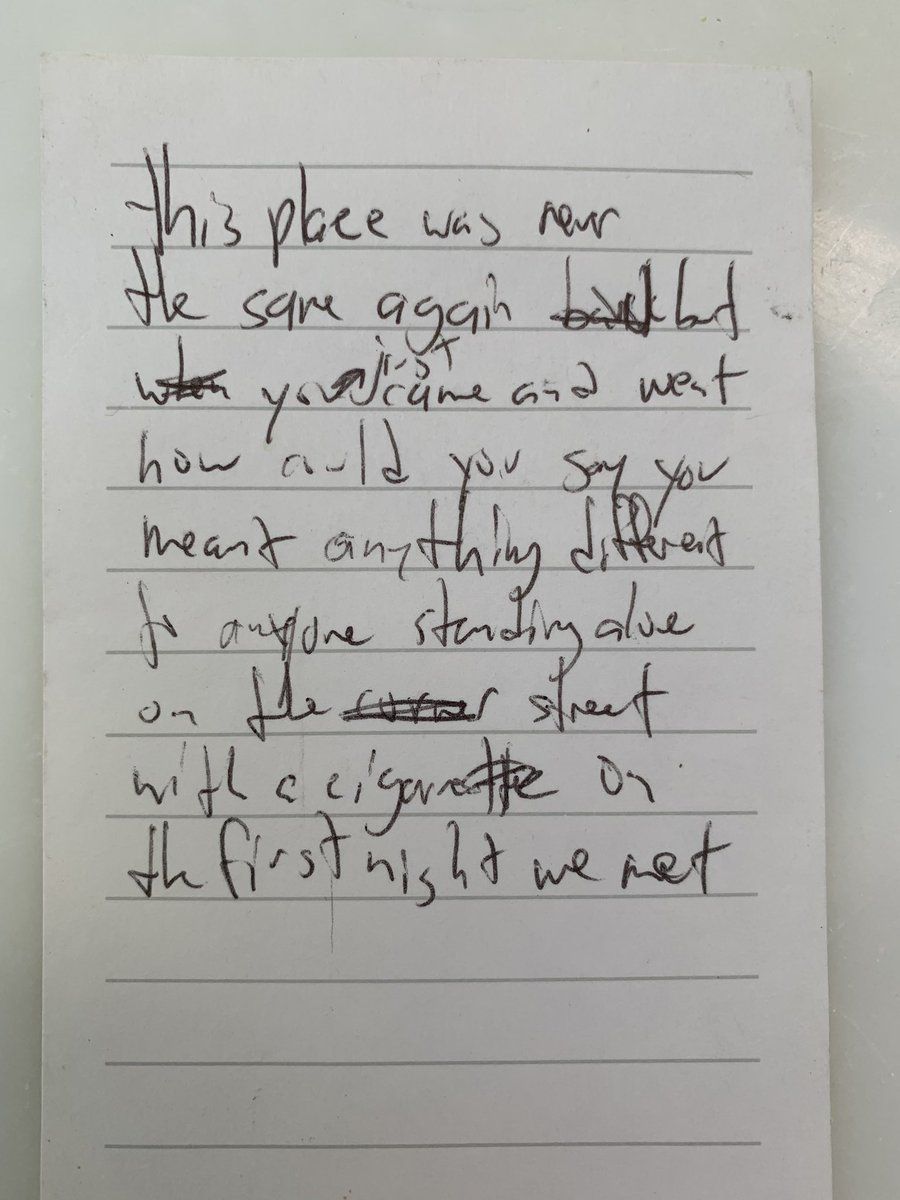 This place was never
the same again but
you just came and went
how could you say you
meant anything different
to anyone standing alone
on the corner street
with a cigarette on
the first night we met